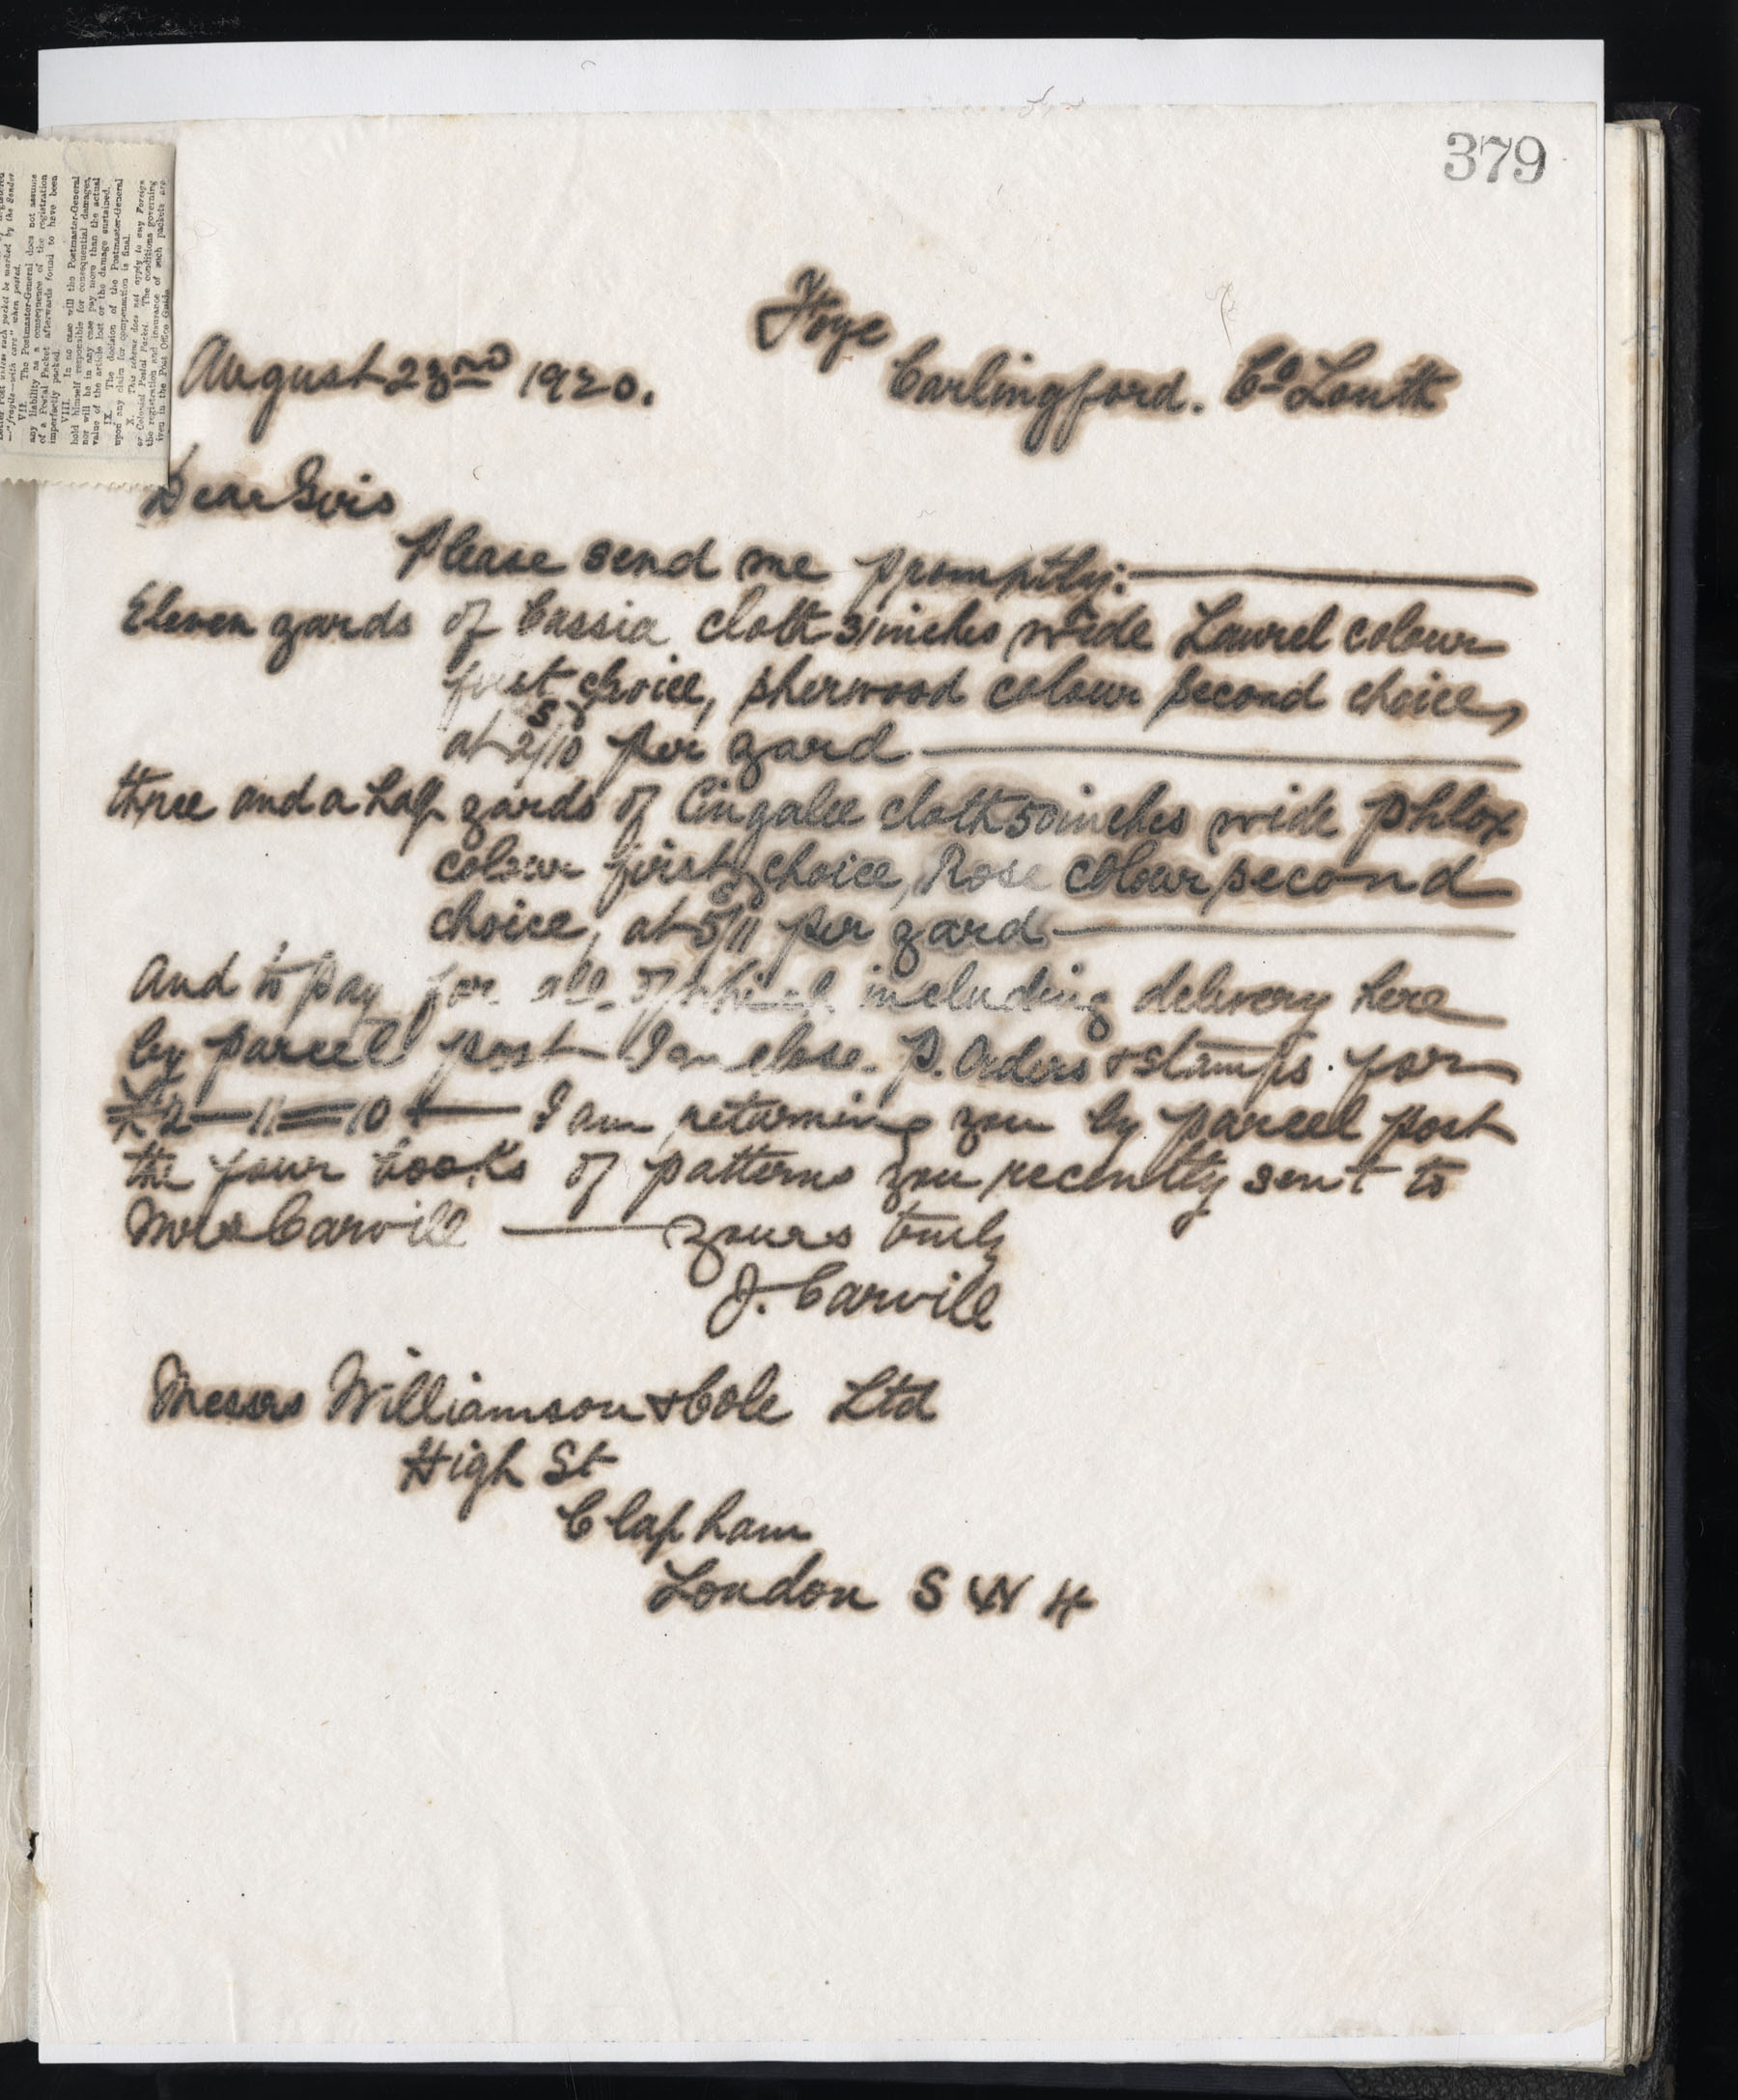 379
Foye
August 23rd 1920. Carlingford. Co Louth
Dear Sirs
Please send me promptly:
Eleven yards of Cassia cloth 31 inches wide Laurel colour
first choice, sherwood colour second choice,
at 2s/10d per yard
three and a half yards of Cingalee cloth 50 inches wide phlox
colour first choice, Rose colour second
choice, at 5s/11 per yard
And to pay for all of which including delivery here
by parcel post I enclose P. Orders & stamps for
£2—11=10 I am returning you by parcel post
the four books of patterns you recently sent to
Mrs Carvill yours truly
J. Carvill
Messrs Williamson & Cole Ltd
High St
Clapham
London S W 4
—"fragile—with care" when posted.
VII. The Postmaster-General does not assume
any liability as a consequence of the registration
of a Postal Packet afterwards found to have been
imperfectly packed.
VIII. In no case will the Postmaster-General
hold himself responsible for consequential damages,
nor will he in any case pay more than the actual
value of the article lost or the damage sustained.
IX. The decision of the Postmaster-General
upon any claim for compensation is final.
X. This scheme does not apply to any Foreign
or Colonial Postal Packet. The conditions governing
the registration and insurance of such packets are
given in the Post Office Guide